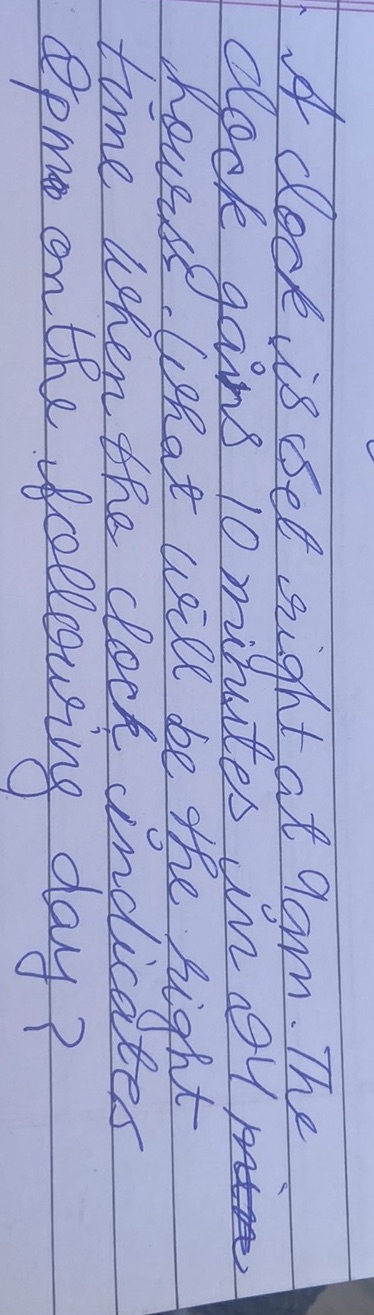 A clock is set right at 9am. The
clock gains 10 minutes in 24
hours. What will be the right
time when the clock indicates
2pm on the following day?